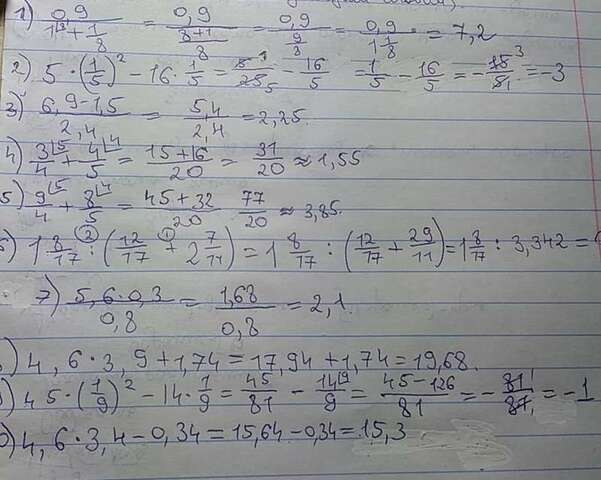 1) 0,9 / (1^{⌊8} + 1/8) = 0,9 / ((8+1)/8) = 0,9 / (9/8) = 0,9 / (1 1/8) = 7,2
2) 5 · (1/5)² - 16 · 1/5 = 5¹/25₅ - 16/5 = 1/5 - 16/5 = - 15³/5₁ = -3
3) (6,9-1,5)/2,4 = 5,4/2,4 = 2,25.
4) 3⌊5/4 + 4⌊4/5 = (15+16)/20 = 31/20 ≈ 1,55
5) 9⌊5/4 + 8⌊4/5 = (45+32)/20 77/20 ≈ 3,85.
) 1 8/17 :② (12/17 +① 2 7/11) = 1 8/17 : (12/17 + 29/11) = 1 8/17 : 3,342 =
7) (5,6·0,3)/0,8 = 1,68/0,8 = 2,1.
) 4,6·3,9+1,74=17,94+1,74=19,68.
) 45·(1/9)² - 14·1/9 = 45/81 - 14⌊9/9 = (45-126)/81 = - 81¹/81₁ = -1
) 4,6·3,4-0,34=15,64-0,34=15,3